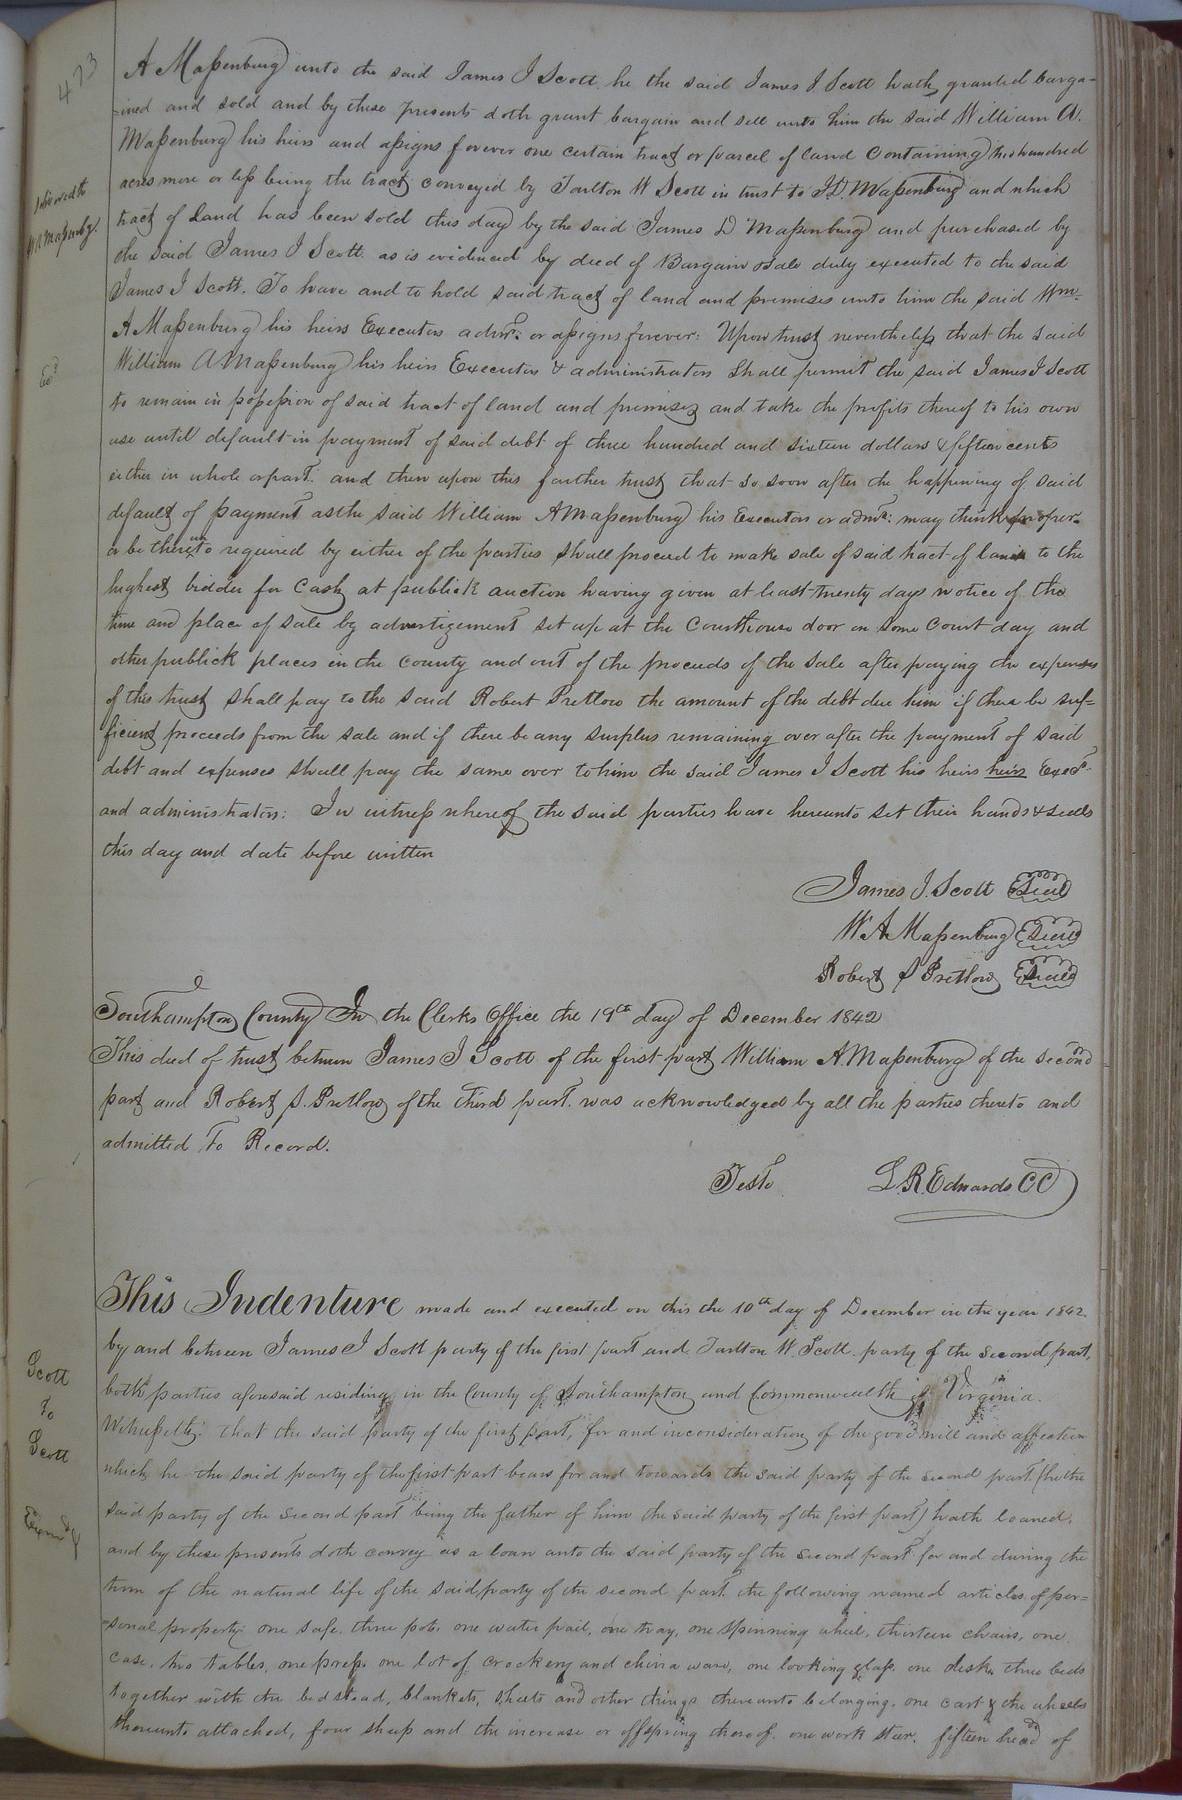 473
A Maßenburg unto the said James J Scott he the said James J Scott hath granted barga-
-ined and sold and by these presents doth grant bargain and sell unto him the said William A.
Maßenburg his heirs and aßigns forever one certain tract or parcel of land Containing two hundred
acres more or leß being the tract conveyed by Tarlton W Scott in trust to J.D. Maßenburg and which
tract of Land has been sold this day by the said James D Maßenburg and purchased by
the said James J Scott as is evidenced by deed of Bargain & Sale duly executed to the said
James J Scott. To have and to hold said tract of land and premises unto him the said Wm.
A Maßenburg his heirs Executors admrs: or aßigns forever: Upon trust nevertheleß that the said
William A Maßenburg his heirs Executors & administrators Shall permit the said James J Scott
to remain in poßeßion of said tract of land and premises and take the profits thereof to his own
use until default in payment of said debt of three hundred and sixteen dollars & fifteen cents
either in whole or part. and then upon this further trust that so soon after the happening of said
default of payment as the said William A Maßenburg his Executors or admrs: may think proper
or be thereunto required by either of the parties shall proceed to make sale of said tract of land to the
highest bidder for Cash at publick auction having given at least twenty days notice of the
time and place of sale by advertizement set up at the Courthouse door on some Court day and
other publick places in the County and out of the proceeds of the sale after paying the expenses
of this trust shall pay to the said Robert Pretlow the amount of the debt due him if there be suf=
ficient proceeds from the sale and if there be any surplus remaining over after the payment of said
debt and expenses shall pay the same over to him the said James J Scott his heirs heirs Exec.
and administrators: In witneß whereof the said parties have hereunto set their hands & seals
this day and date before written
James J. Scott Seal
W. A Maßenburg Seal
Robert S Pretlow Seal
Southampton County In the Clerks Office the 19th day of December 1842
This deed of trust between James J Scott of the first part William A Maßenburg of the second
part and Robert S. Pretlow of the third part. was acknowledged by all the parties thereto and
admitted To Record.
Teste L. R. Edwards CC
This Indenture made and executed on this the 10th day of December in the year 1842
by and between James J Scott party of the first part and Tarlton W. Scott party of the second part,
both parties aforesaid residing in the County of Southampton and Commonwealth of Virginia.
Witneßeth: that the said party of the first part, for and in consideration of the good will and affection
which he the said party of the first part bears for and towards the said party of the second part (he the
said party of the second part being the father of him the said party of the first part) hath loaned,
and by these presents doth convey as a loan unto the said party of the second part for and during the
term of the natural life of the said party of the second part the following named articles of per=
sonal property: one safe, three pots, one water pail, one tray, one spinning wheel, thirteen chairs, one
case, two tables, one preß, one lot of crockery and china ware, one looking glaß, one desk, three beds
together with the bedstead, blankets, sheets and other things thereunto belonging, one cart & the wheels
thereunto attached, four sheep and the increase or offspring thereof. one work steer, fifteen head of
delivered to
W A Maßenbg.
Scott
To
Scott
Examd